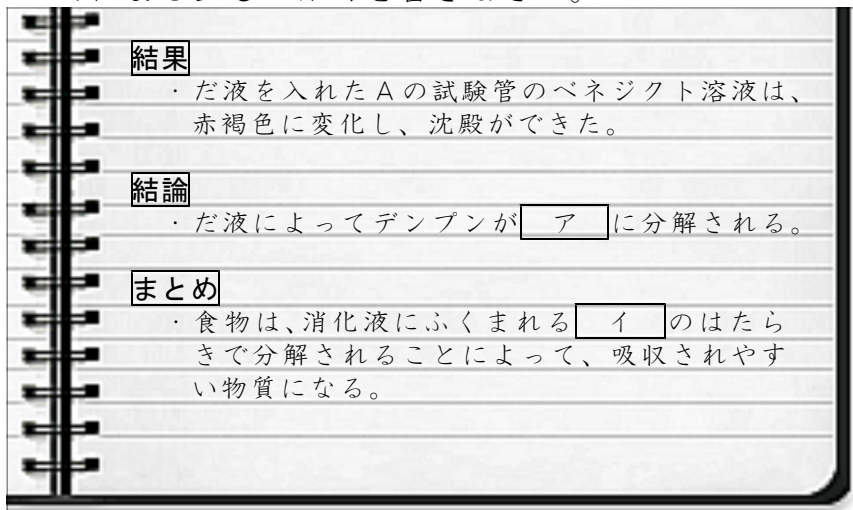 結果
・だ液を入れたAの試験管のベネジクト溶液は、
赤褐色に変化し、沈殿ができた。
結論
・だ液によってデンプンが ア に分解される。
まとめ
・食物は、消化液にふくまれる イ のはたら
きで分解されることによって、吸収されやす
い物質になる。